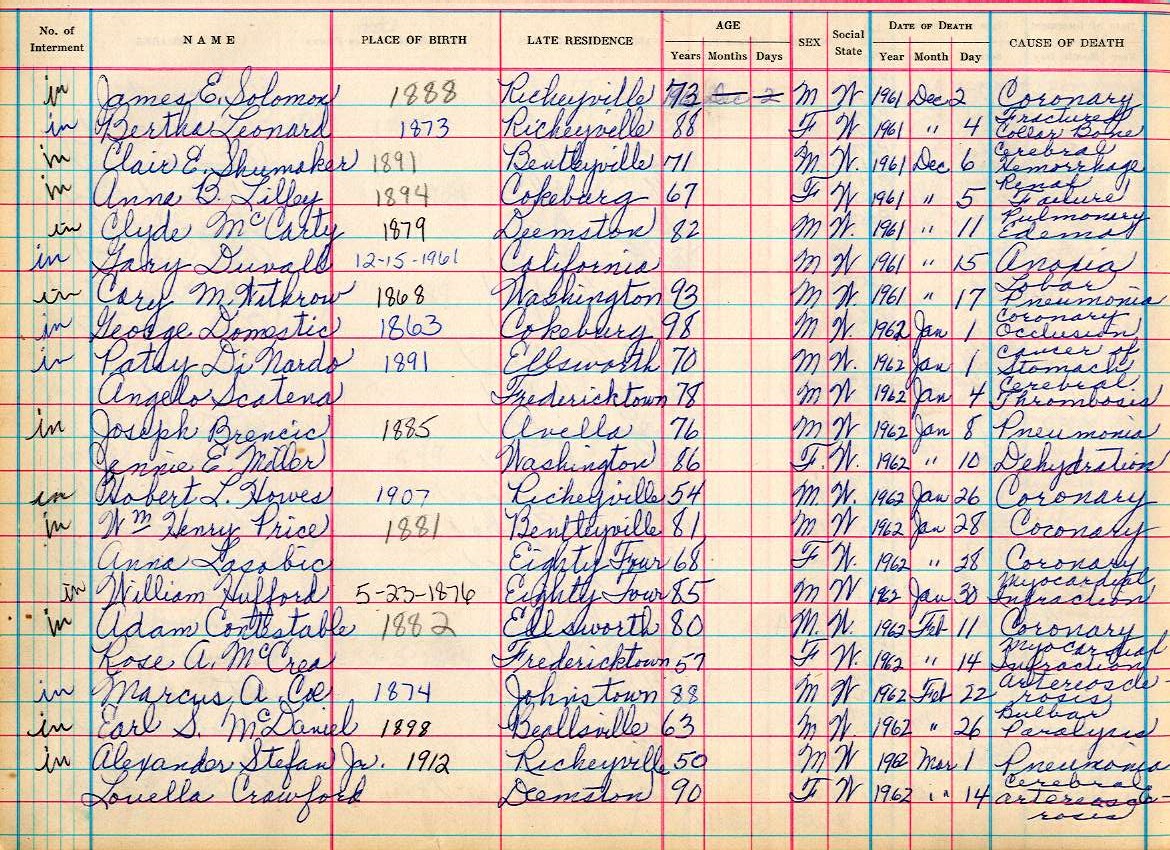 No. of Interment NAME PLACE OF BIRTH LATE RESIDENCE AGE Years Months Days SEX Social State DATE OF DEATH Year Month Day CAUSE OF DEATH
in James E. Solomon 1888 Rickeyville 73 Dec 2 M W 1961 Dec 2 Coronary
in Bertha Leonard 1873 Rickeyville 88 F W 1961 " 4 Fractured Collar Bone
in Clair E. Shumaker 1891 Bentleyville 71 M W. 1961 Dec 6 Cerebral Hemorrhage
in Anna B. Lilley 1894 Cokeburg 67 F W 1961 " 5 Renal Failure
in Clyde McCarty 1879 Deemston 82 M W 1961 " 11 Pulmonary Edema
in Gary Duvall 12-15-1961 California M W. 1961 " 15 Anoxia
in Carey M. Withrow 1868 Washington 93 M W. 1961 " 17 Lobar Pneumonia
in George Domestic 1863 Cokeburg 98 M W. 1962 Jan 1 Coronary Occlusion
in Patsy Di Nardo 1891 Ellsworth 70 M W. 1962 Jan 1 Cancer of Stomach
Angelo Scatena Fredericktown 78 M W 1962 Jan 4 Cerebral Thrombosis
in Joseph Brencic 1885 Avella 76 M W 1962 Jan 8 Pneumonia
Jennie E. Miller Washington 86 F. W. 1962 " 10 Dehydration
in Hobert L. Howes 1907 Richeyville 54 M. W. 1962 Jan 26 Coronary
in Wm Henry Price 1881 Bentleyville 81 M W 1962 Jan 28 Coconary
Anna Lasobic Eighty Four 68 F W. 1962 " 28 Coronary
in William Hufford 5-23-1876 Eighty Four 85 M W 1962 Jan 30 Myocardial Infraction
in Adam Contestable 1882 Ellsworth 80 M. W. 1962 Feb 11 Coronary
Rose A. McCrea Fredericktown 57 F W. 1962 " 14 Myocardial Infraction
in Marcus A. Coe 1874 Johnstown 88 M W 1962 Feb 22 Artereoscle-rosis
in Earl S. McDaniel 1898 Beallsville 63 M W. 1962 " 26 Bulbar Paralysis
in Alexander Stefan Jr. 1912 Rickeyville 50 M W 1962 Mar 1 Pneumonia
Louella Crawford Deemston 90 F W 1962 " 14 Cerebral